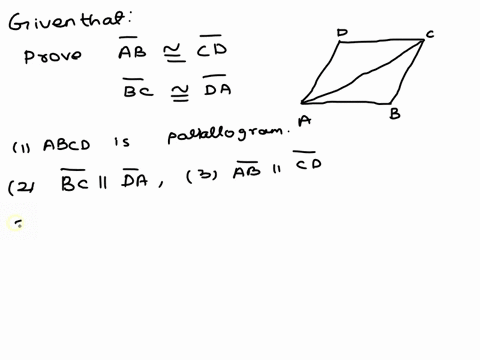 Given that:
Prove $\overline{AB} \cong \overline{CD}$
$\overline{BC} \cong \overline{DA}$
D C
A B
(1) ABCD is parallogram.
(2) $\overline{BC} \parallel \overline{DA}$, (3) $\overline{AB} \parallel \overline{CD}$